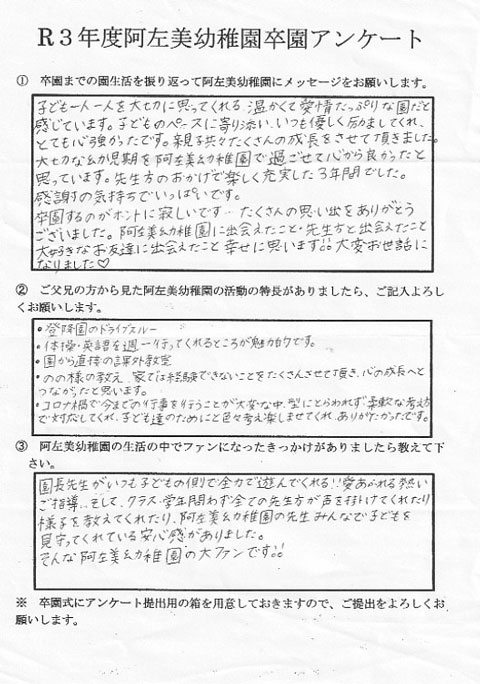 R３年度阿左美幼稚園卒園アンケート
① 卒園までの園生活を振り返って阿左美幼稚園にメッセージをお願いします。
子ども一人一人を大切に思ってくれる、温かくて愛情たっぷりな園だと
感じています。子どものペースに寄り添い、いつも優しく励ましてくれ、
とても心強かったです。親子共々たくさんの成長をさせて頂きました。
大切な幼児期を阿左美幼稚園で過ごせて心から良かったと
思っています。先生方のおかげで楽しく充実した３年間でした。
感謝の気持ちでいっぱいです。
卒園するのがホントに寂しいです… たくさんの思い出をありがとう
ございました。阿左美幼稚園に出会えたこと・先生方と出会えたこと
大好きなお友達に出会えたこと 幸せに思います!! 大変お世話に
なりました♡
② ご父兄の方から見た阿左美幼稚園の活動の特長がありましたら、ご記入よろし
くお願いします。
・登降園のドライブスルー
・体操・英語を週一行ってくれるところが魅力的です。
・園から直接の課外教室
・のの様の教え 家では経験できないことをたくさんさせて頂き、心の成長へと
つながったと思います。
・コロナ禍で今までの行事を行うことが大変な中、型にとらわれず柔軟な考え方
で対応してくれ、子ども達のためにと色々考え楽しませてくれ、ありがたかったです。
③ 阿左美幼稚園の生活の中でファンになったきっかけがありましたら教えて下
さい。
園長先生がいつも子どもの側で全力で遊んでくれる!! 愛あふれる熱い
ご指導…そして、クラス・学年問わず全ての先生方が声を掛けてくれたり
様子を教えてくれたり、阿左美幼稚園の先生みんなで子どもを
見守ってくれている安心感がありました。
そんな阿左美幼稚園の大ファンです!!
※ 卒園式にアンケート提出用の箱を用意しておきますので、ご提出をよろしくお
願いします。